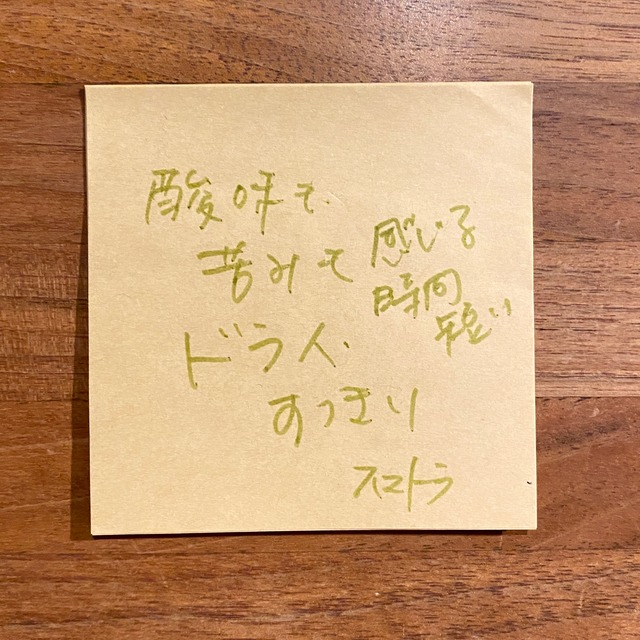 酸味も
苦みも
感じる
時間
短い
ドライ
すっきり
スマトラ